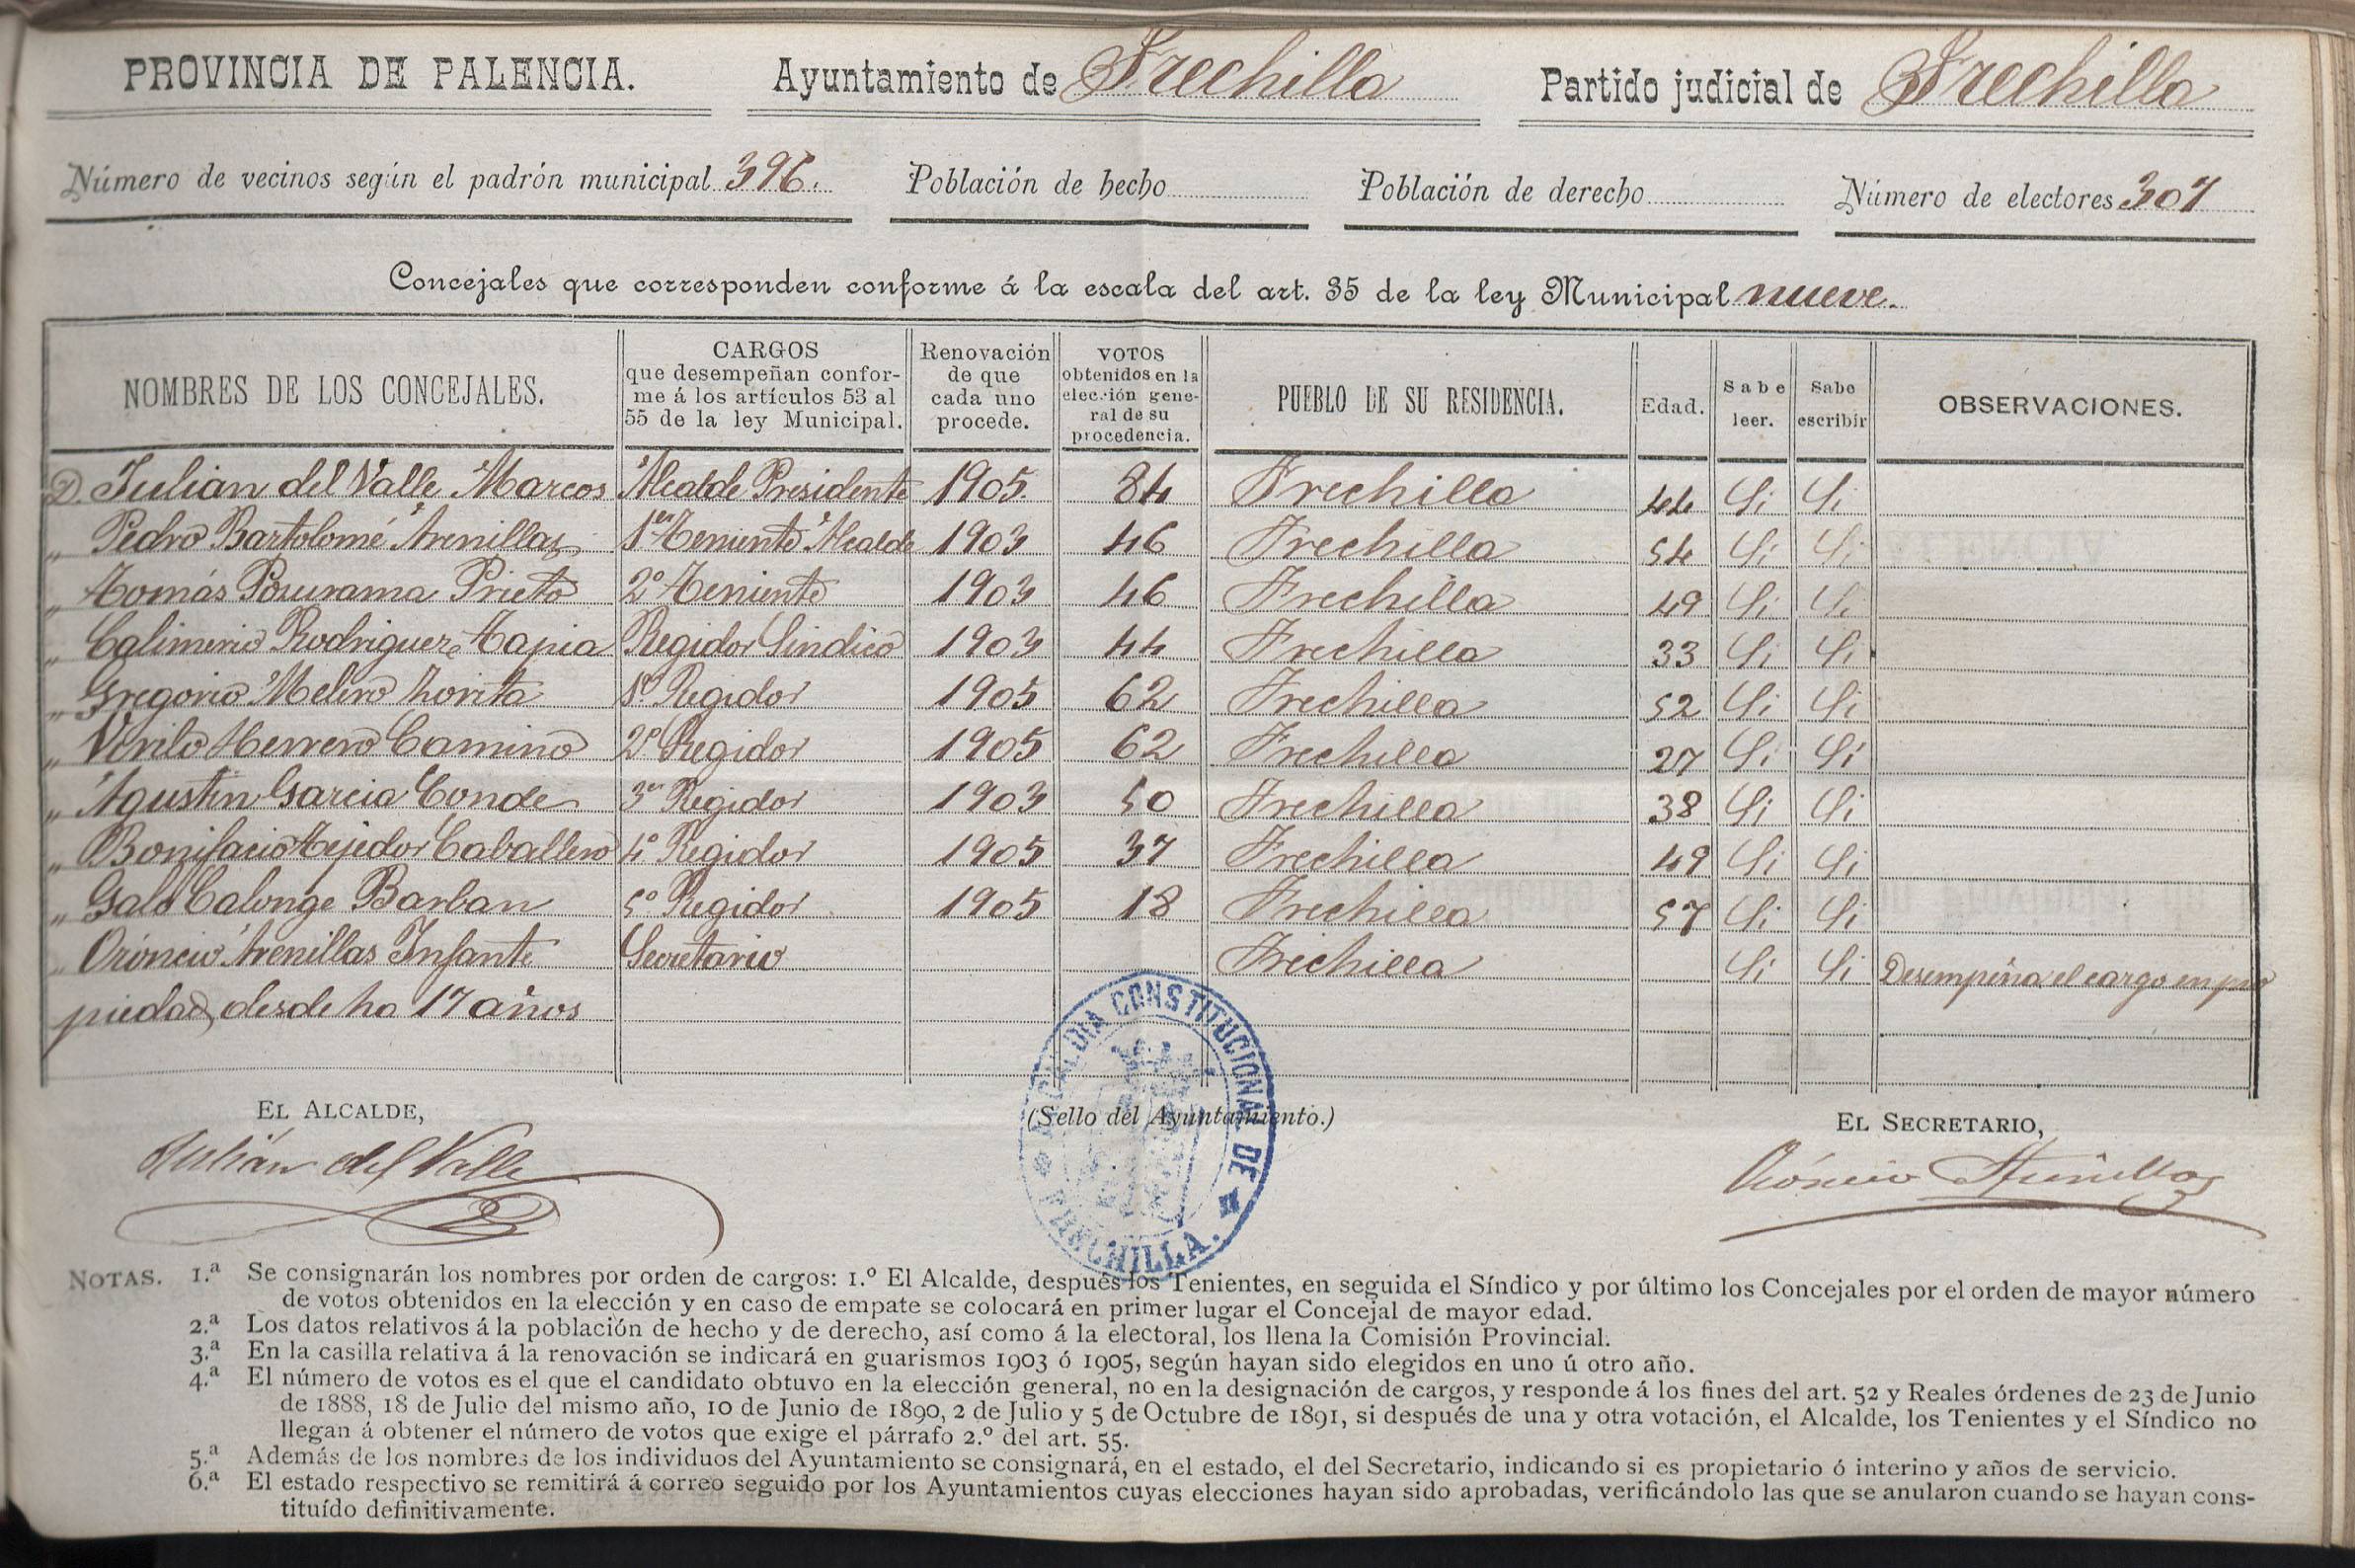 PROVINCIA DE PALENCIA. Ayuntamiento de Frechilla Partido judicial de Frechilla
Número de vecinos según el padrón municipal 396. Población de hecho Población de derecho Número de electores 307
Concejales que corresponden conforme á la escala del art. 35 de la ley Municipal nueve.
NOMBRES DE LOS CONCEJALES. CARGOS que desempeñan confor- me á los artículos 53 al 55 de la ley Municipal. Renovación de que cada uno procede. VOTOS obtenidos en la elección gene- ral de su procedencia. PUEBLO DE SU RESIDENCIA. Edad. Sabe leer. Sabe escribir OBSERVACIONES.
D. Julian del Valle Marcos Alcalde Presidente 1905 84 Frechilla 44 Si Si
" Pedro Bartolomé Arenillas 1er Teniente Alcalde 1903 46 Frechilla 54 Si Si
" Tomás Prieto 2º Teniente 1903 46 Frechilla 49 Si Si
" Calimerio Rodriguez Tapia Regidor Sindico 1903 44 Frechilla 33 Si Si
" Gregorio Melero Zorita 1º Regidor 1905 62 Frechilla 52 Si Si
" Virilo Herrero Camino 2º Regidor 1905 62 Frechilla 27 Si Si
" Agustin Garcia Conde 3er Regidor 1903 50 Frechilla 38 Si Si
" Bonifacio Tejedor Caballero 4º Regidor 1905 37 Frechilla 49 Si Si
" Galo Calonge Barban 5º Regidor 1905 18 Frechilla 57 Si Si
" Oróncio Arenillas Infante Secretario Frechilla Si Si Desempeña el cargo en pro
piedad, desde ha 17 años
EL ALCALDE, (Sello del Ayuntamiento.) EL SECRETARIO,
Julián del Valle Oróncio Arenillas
ALCALDIA CONSTITUCIONAL DE FRECHILLA.
NOTAS. 1.ª Se consignarán los nombres por orden de cargos: 1.º El Alcalde, después los Tenientes, en seguida el Síndico y por último los Concejales por el orden de mayor número
de votos obtenidos en la elección y en caso de empate se colocará en primer lugar el Concejal de mayor edad.
2.ª Los datos relativos á la población de hecho y de derecho, así como á la electoral, los llena la Comisión Provincial.
3.ª En la casilla relativa á la renovación se indicará en guarismos 1903 ó 1905, según hayan sido elegidos en uno ú otro año.
4.ª El número de votos es el que el candidato obtuvo en la elección general, no en la designación de cargos, y responde á los fines del art. 52 y Reales órdenes de 23 de Junio
de 1888, 18 de Julio del mismo año, 10 de Junio de 1890, 2 de Julio y 5 de Octubre de 1891, si después de una y otra votación, el Alcalde, los Tenientes y el Síndico no
llegan á obtener el número de votos que exige el párrafo 2.º del art. 55.
5.ª Además de los nombres de los individuos del Ayuntamiento se consignará, en el estado, el del Secretario, indicando si es propietario ó interino y años de servicio.
6.ª El estado respectivo se remitirá á correo seguido por los Ayuntamientos cuyas elecciones hayan sido aprobadas, verificándolo las que se anularon cuando se hayan cons-
tituído definitivamente.